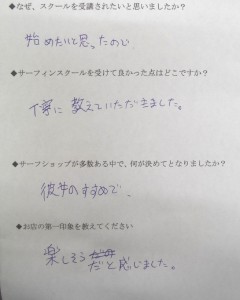 ◆なぜ、スクールを受講されたいと思いましたか？
始めたいと思ったので
◆サーフィンスクールを受けて良かった点はどこですか？
丁寧に教えていただきました。
◆サーフショップが多数ある中で、何が決めてとなりましたか？
彼女のすすめで
◆お店の第一印象を教えてください
楽しそうだと感じました。